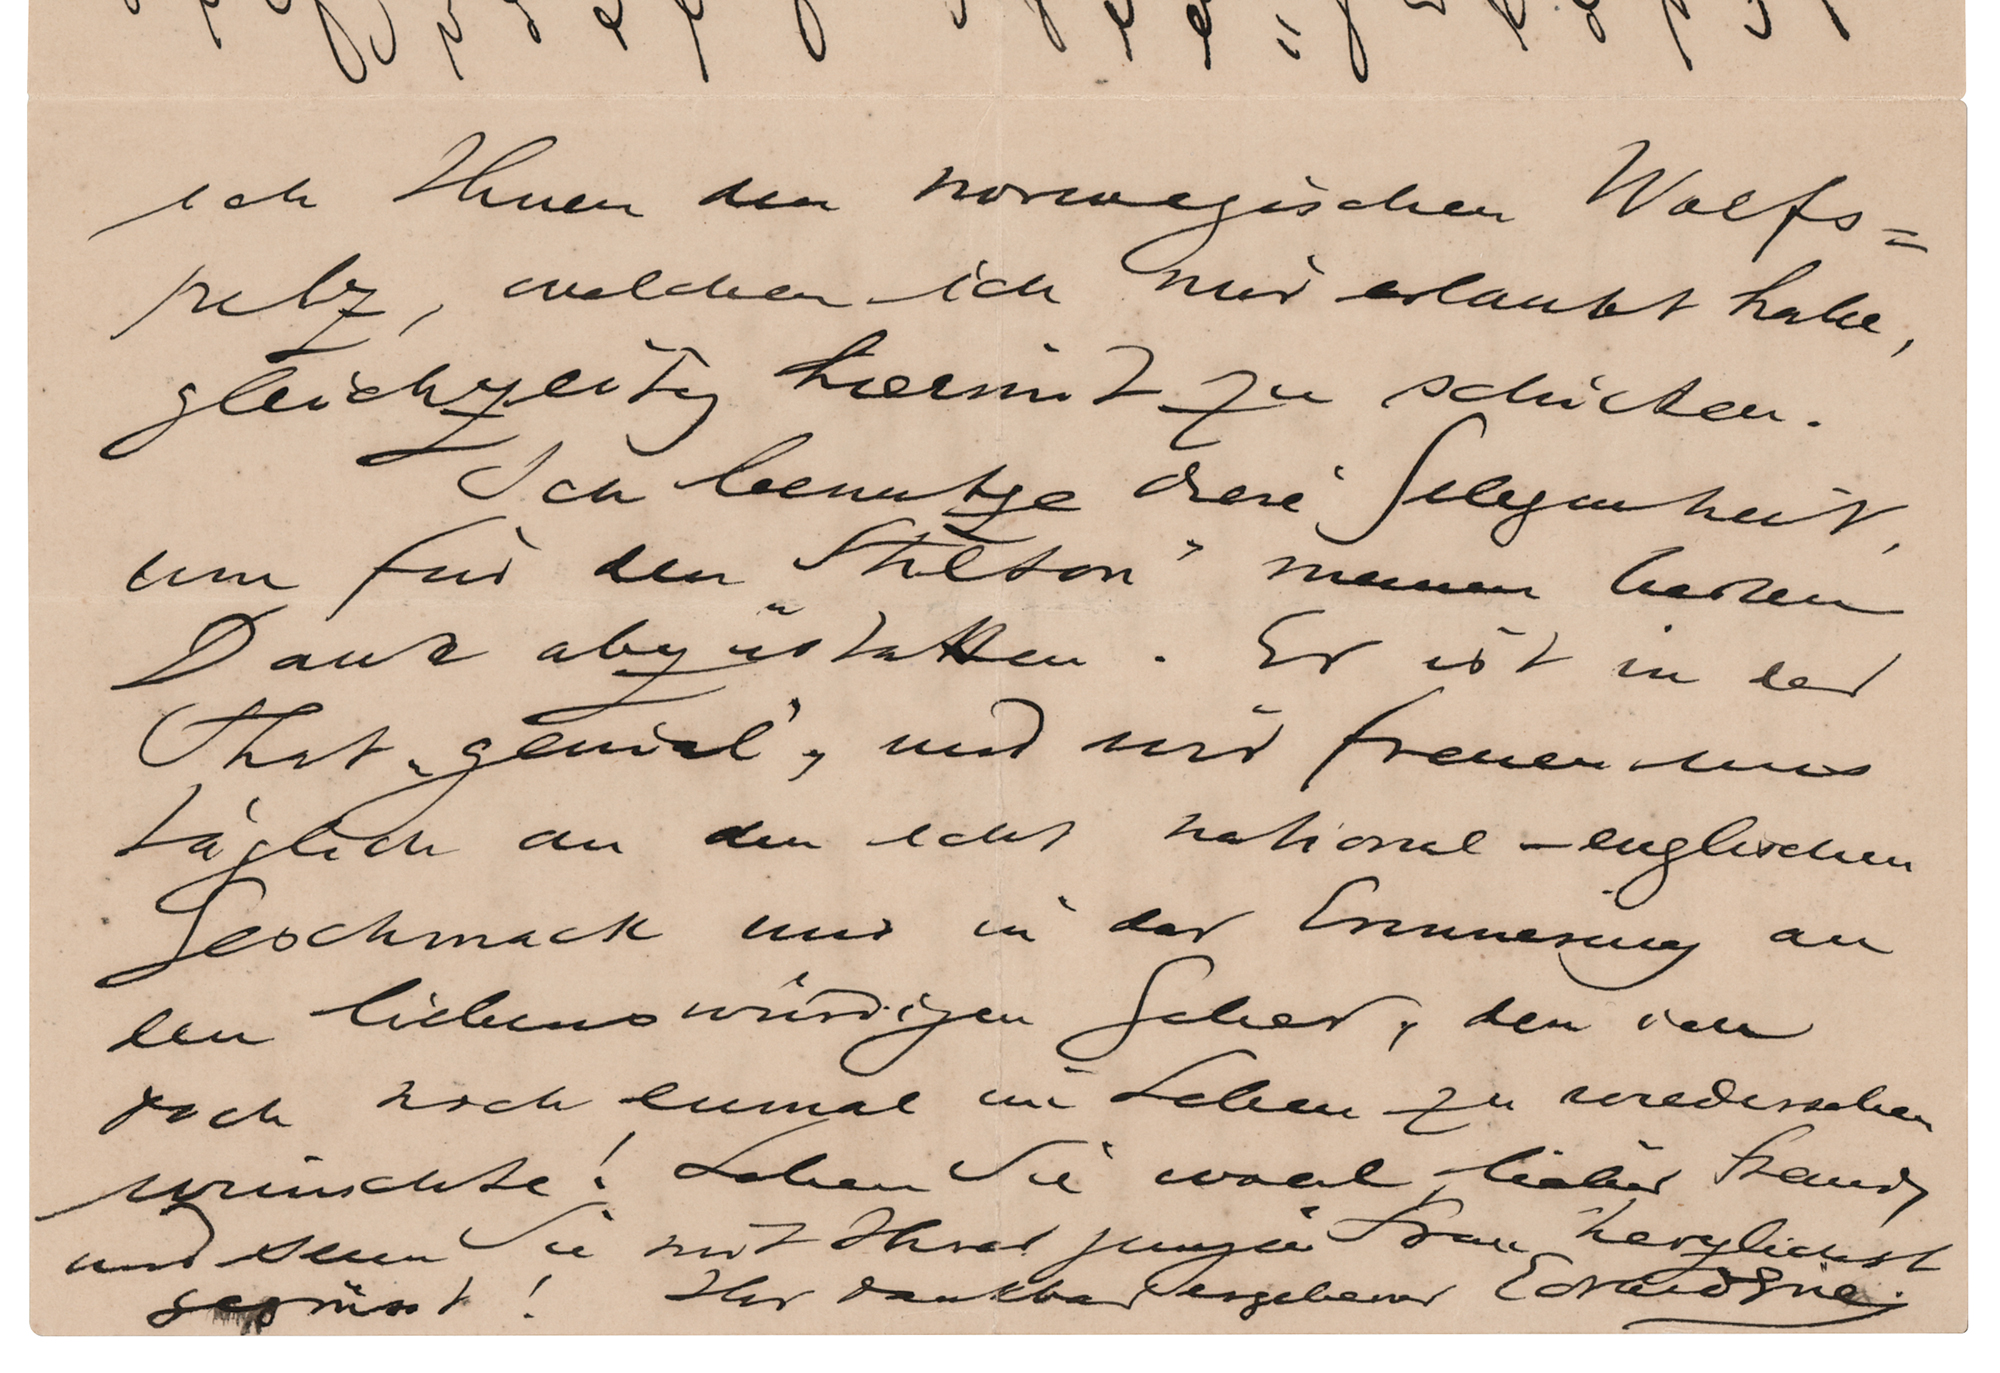 ich Ihnen den norwegischen Wolfs=
pelz, welchen ich mir erlaubt habe,
gleichzeitig hiermit zu schicken.
Ich benutze diese Gelegenheit,
um für den "Stilton" meinen besten
Dank abzustatten. Er ist in der
That „genial", und wir freuen uns
täglich an den echt national-englischen
Geschmack und in der Erinnerung an
den liebenswürdigen Geber, den ich
doch noch einmal im Leben zu wiedersehen
wünschte! Leben Sie wohl lieber Freund,
und seien Sie mit Ihrer jungen Frau herzlichst
gegrüsst! Ihr dankbar ergebener Edvard Grieg.